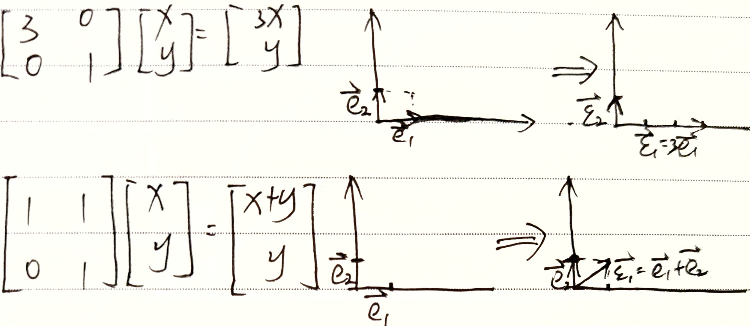 [3 0 0 1] [x y] = [3x y]
e⃗₂ e⃗₁ ⇒ ε⃗₂ ε⃗₁=3e⃗₁
[1 1 0 1] [x y] = [x+y y]
e⃗₂ e⃗₁ ⇒ e⃗₂ ε⃗₁=e⃗₁+e⃗₂